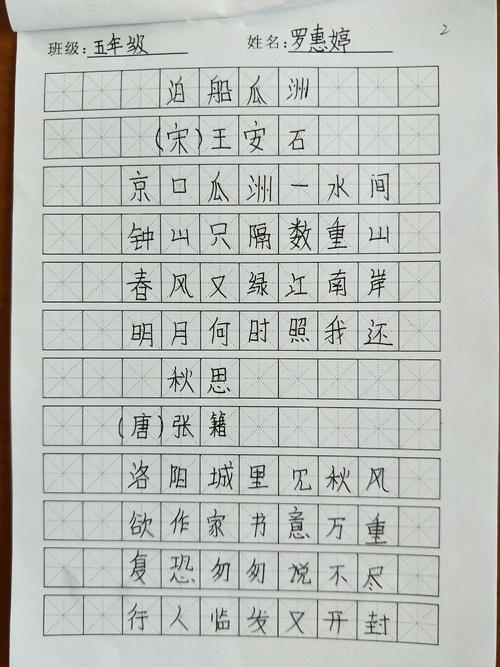 班级：五年级 姓名：罗惠婷 2
泊船瓜洲
（宋）王安石
京口瓜洲一水间
钟山只隔数重山
春风又绿江南岸
明月何时照我还
秋思
（唐）张籍
洛阳城里见秋风
欲作家书意万重
复恐匆匆说不尽
行人临发又开封